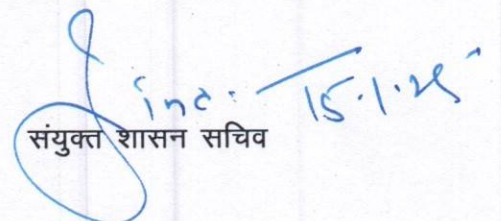 15.1.25
संयुक्त शासन सचिव